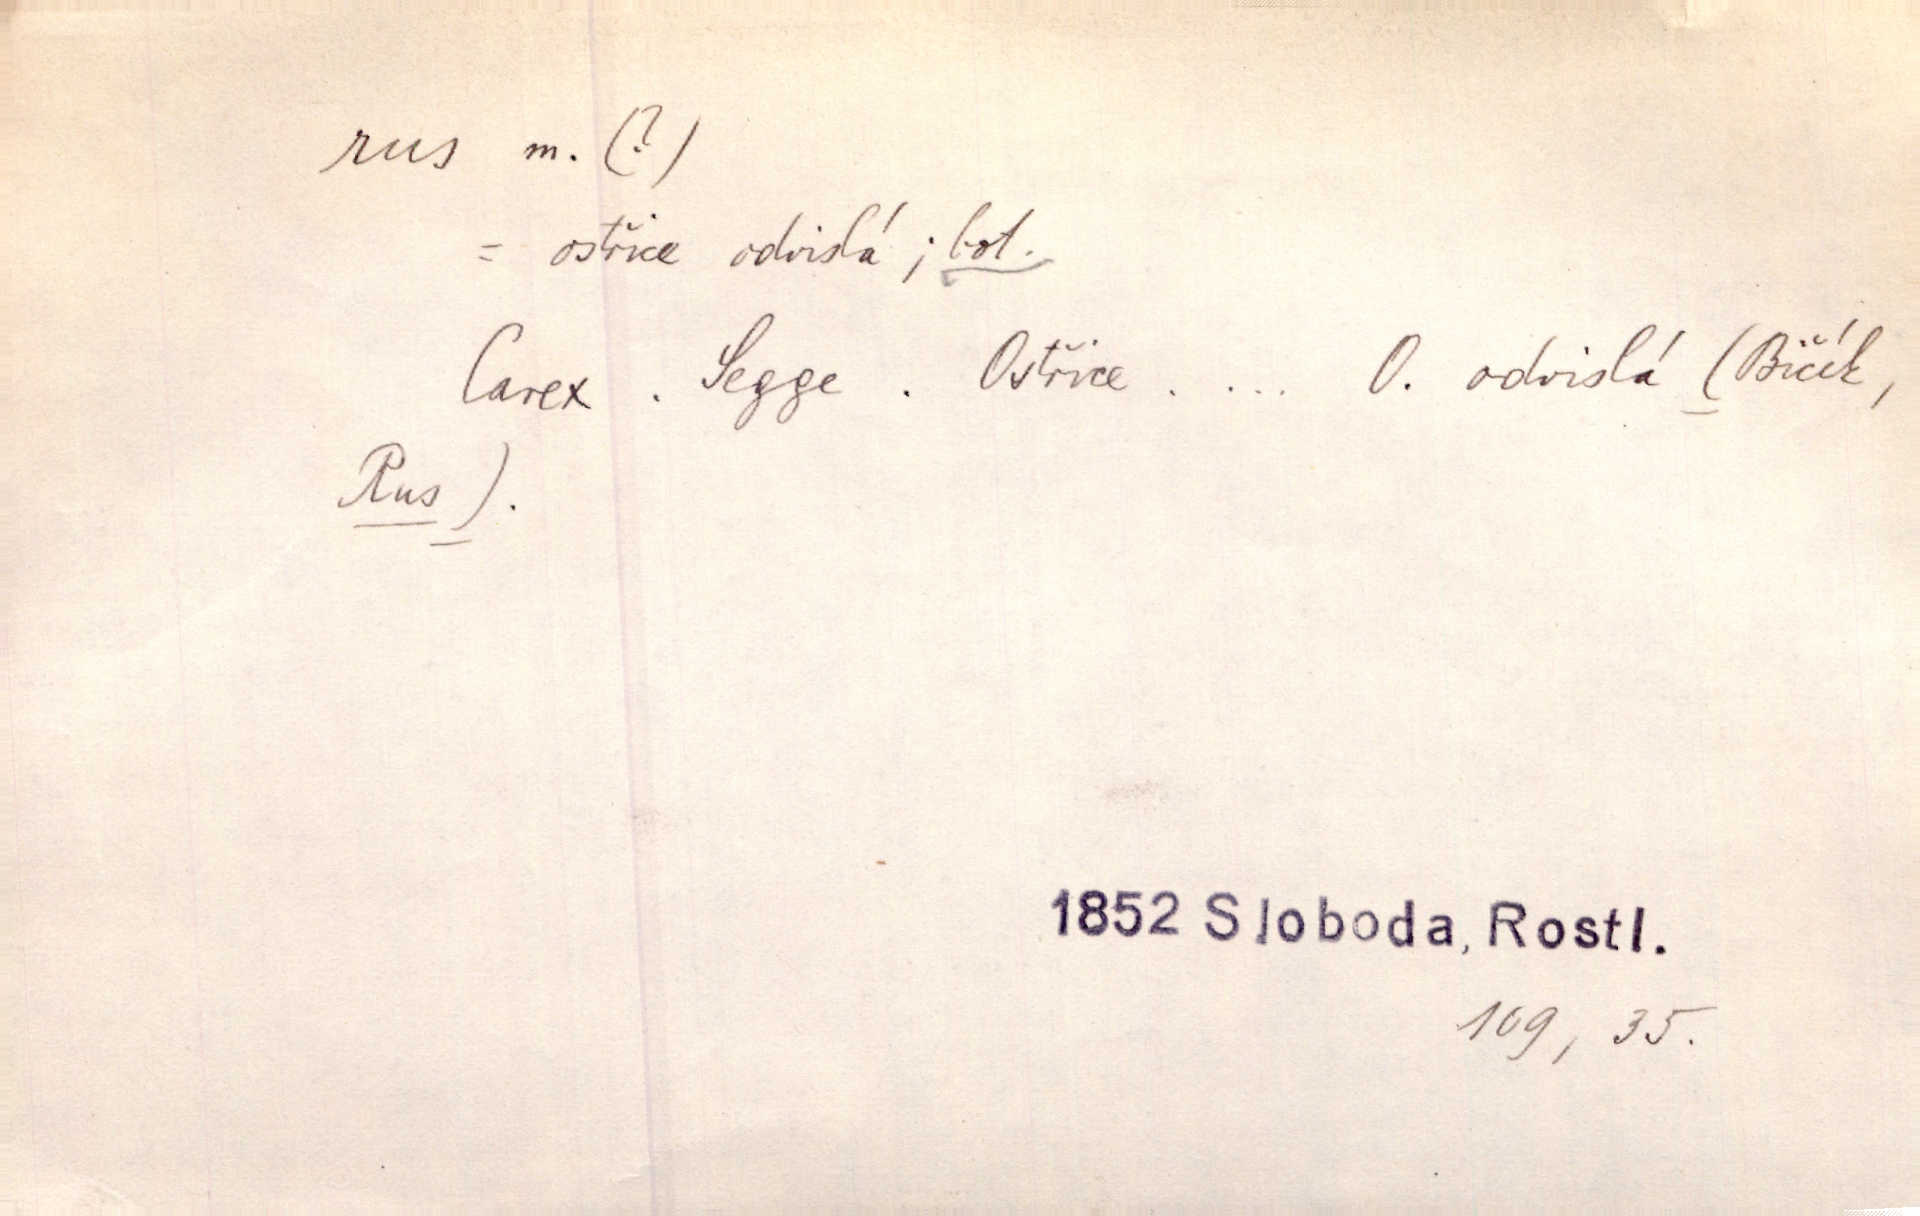 rus m. (?)
= ostřice odvislá; bot.
Carex. Segge. Ostřice. ... O. odvislá (Bičík,
Rus).
1852 Sloboda, Rostl.
109, 35.